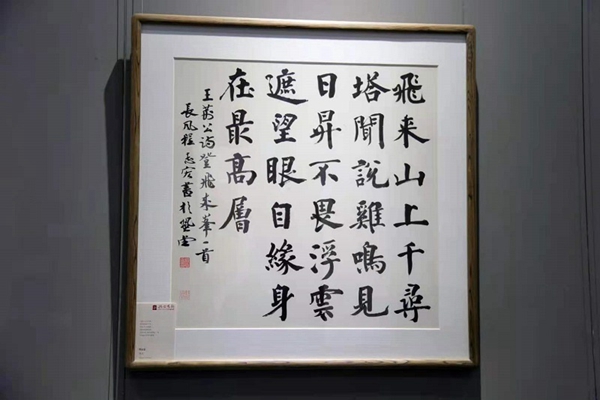 飛来山上千尋
塔聞說雞鳴見
日昇不畏浮雲
遮望眼自緣身
在最高層
王荆公詩登飛来峯一首
長風程志宏書於堂